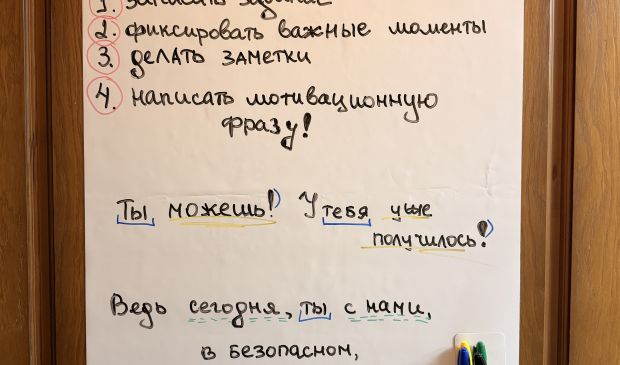 1. записать задание
2. фиксировать важные моменты
3. делать заметки
4. написать мотивационную
фразу!
Ты можешь! У тебя уже
получилось!
Ведь сегодня, ты с нами,
в безопасном,